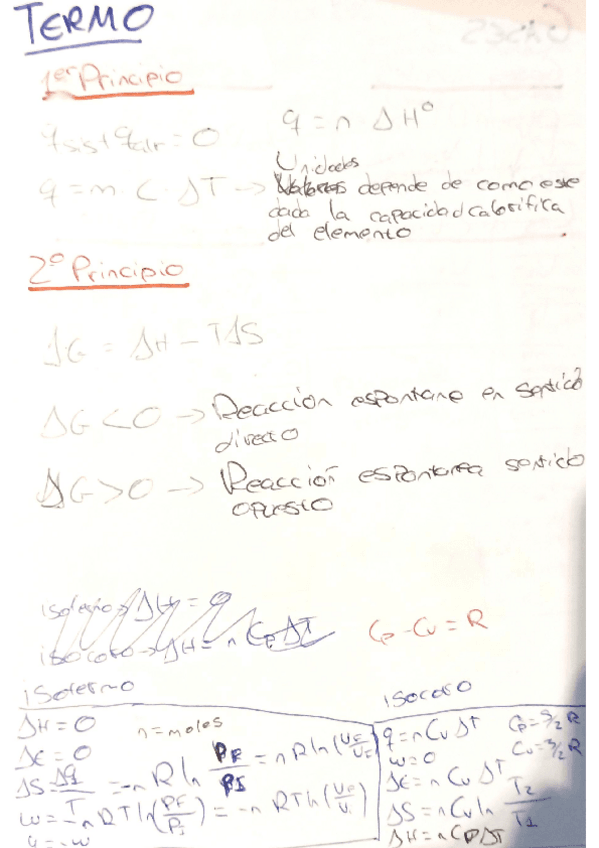 TERMO
1er Principio
qsist + qalr = 0
q = n · ΔH°
q = m C · ΔT → Unidades depende de como este
dada la capacidad calorifica
del elemento
2º Principio
ΔG = ΔH - TΔS
ΔG < 0 → Reacción espontane en sentido
directo
ΔG > 0 → Reacción espontanea sentido
opuesto
Cp - Cv = R
isotermo
ΔH = 0
n = moles
ΔE = 0
ΔS = Δq/T = -n R ln PF/PI = n R ln (VF/VI)
w = -n R T ln (PF/PI) = -n R T ln (VF/VI)
q = -w
isocoro
q = n Cv ΔT
Cp = 5/2 R
w = 0
Cv = 3/2 R
ΔE = n Cv ΔT
ΔS = n Cv ln T2/T1
ΔH = n Cp ΔT